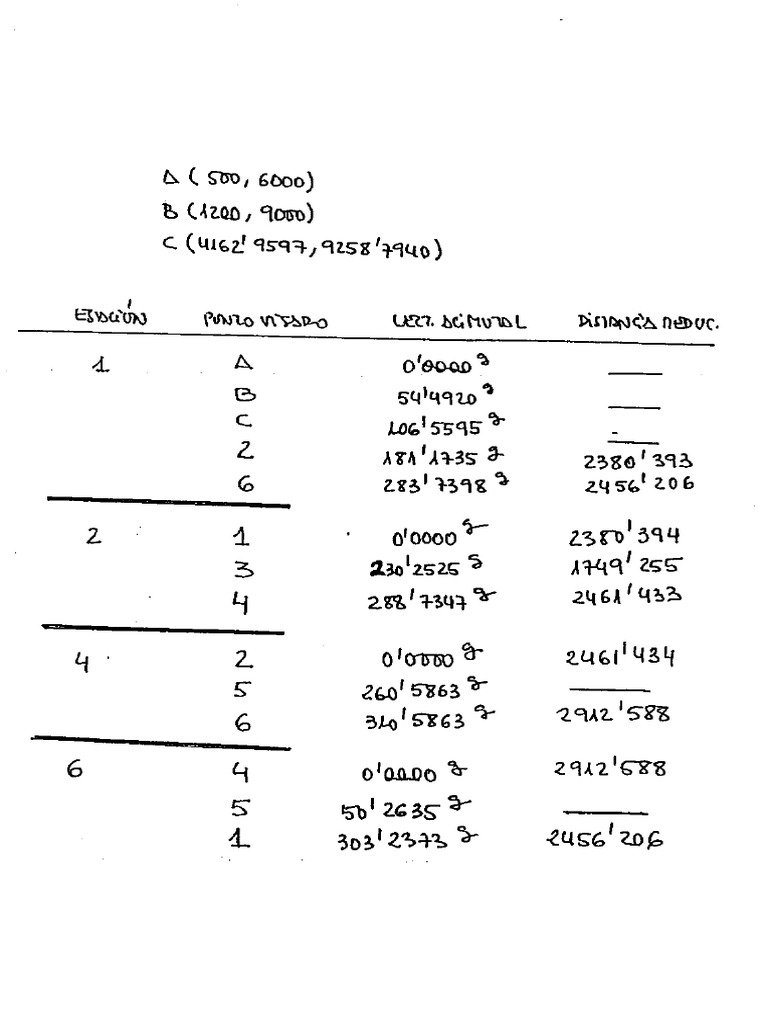 A (500, 6000)
B (1200, 9000)
C (4162'9597, 9258'7940)
ESTACIÓN PUNTO VISADO LECT. ACIMUTAL DISTANCIA REDUC.
1 A 0'0000 g ——
B 54'4920 g ——
C 106'5595 g ——
2 181'1735 g 2380'393
6 283'7398 g 2456'206
2 1 0'0000 g 2380'394
3 230'2525 g 1749'255
4 288'7347 g 2461'433
4 2 0'0000 g 2461'434
5 260'5863 g ——
6 310'5863 g 2912'588
6 4 0'0000 g 2912'588
5 50'2635 g ——
1 303'2373 g 2456'206